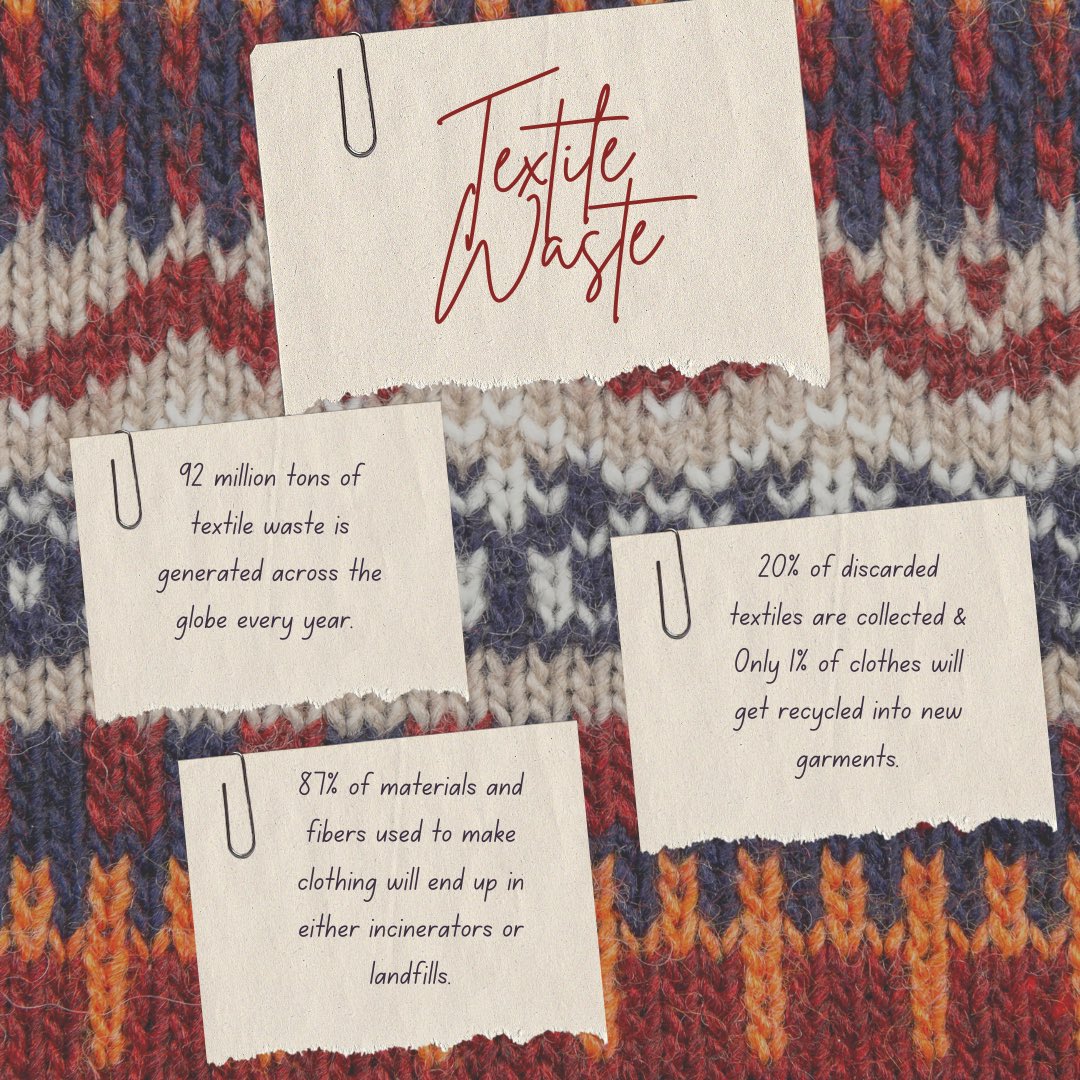 Textile
Waste
92 million tons of
textile waste is
generated across the
globe every year.
20% of discarded
textiles are collected &
Only 1% of clothes will
get recycled into new
garments.
87% of materials and
fibers used to make
clothing will end up in
either incinerators or
landfills.